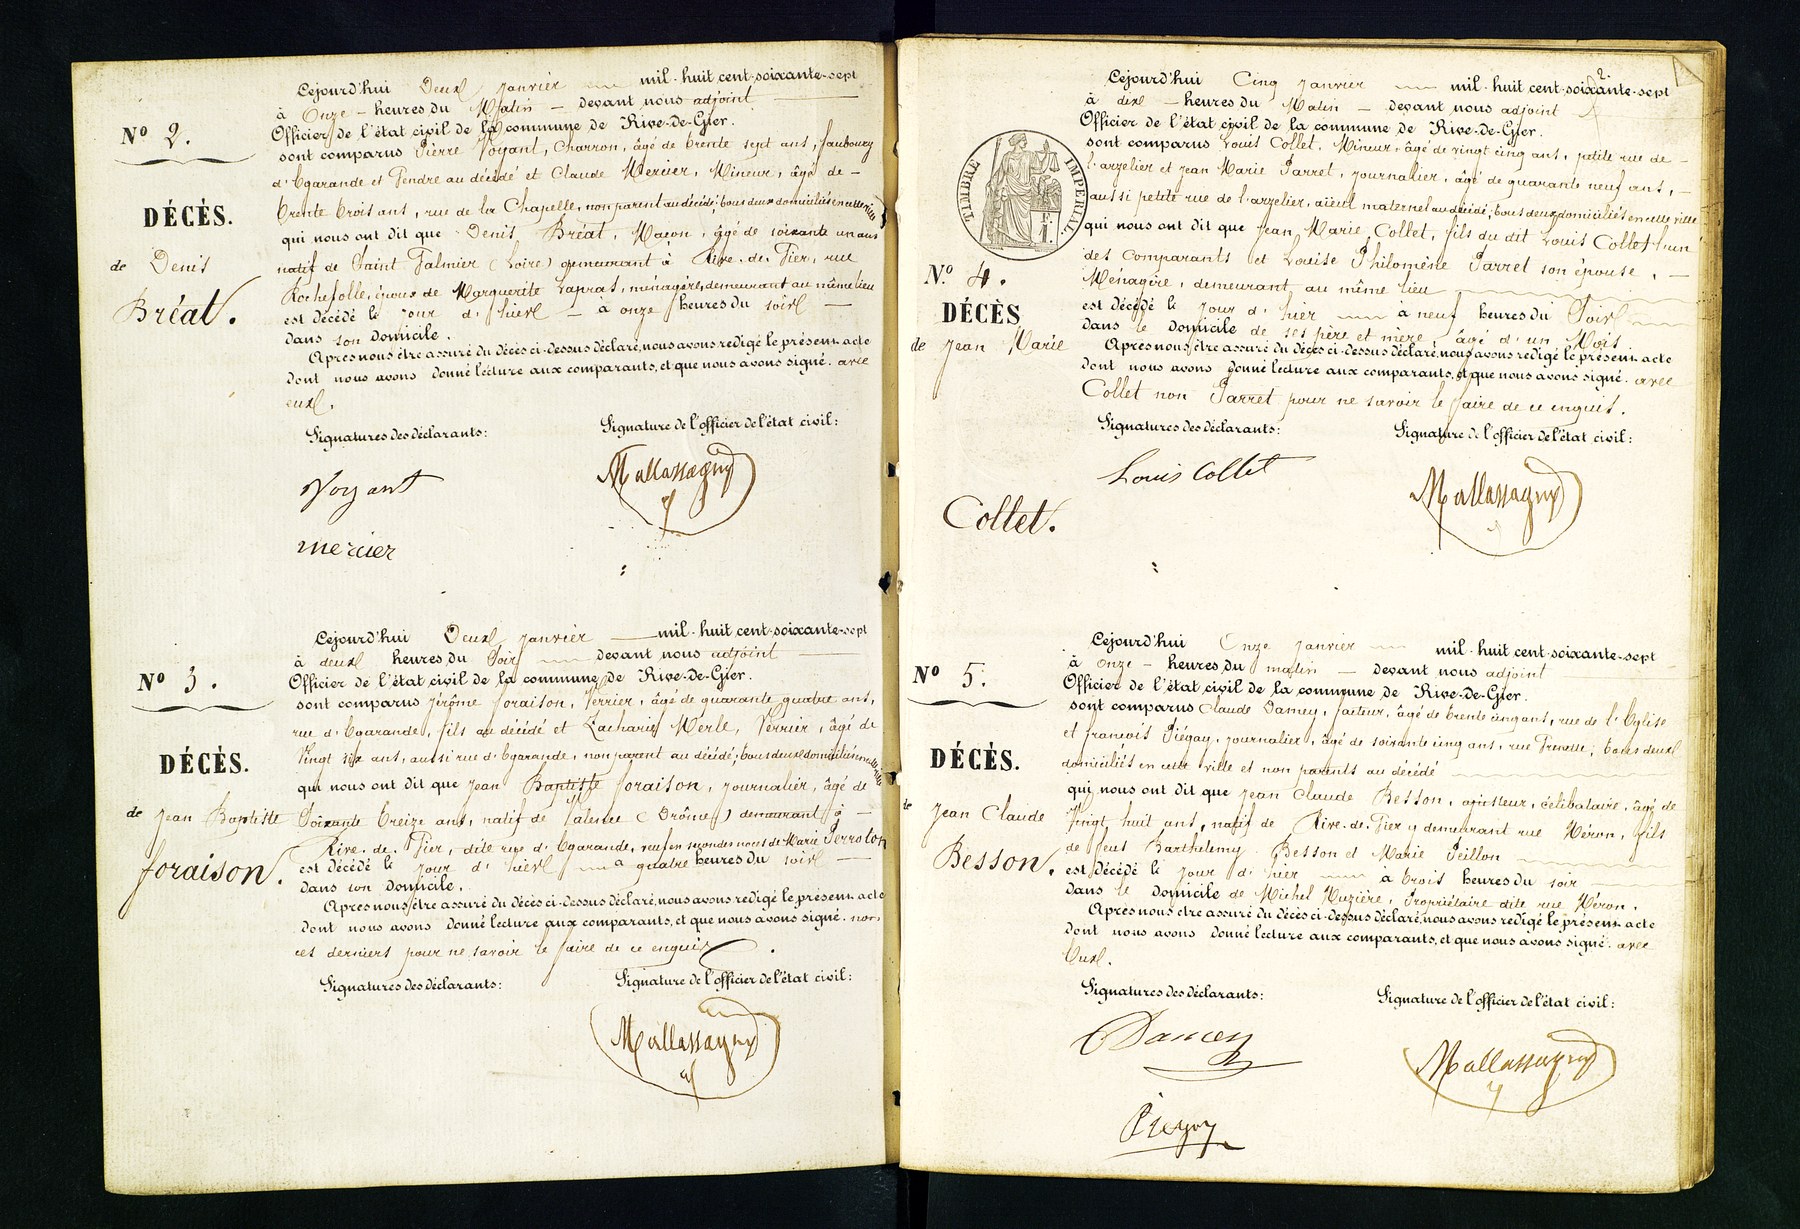 Cejourd'hui Deux Janvier mil-huit cent-soixante-sept
à Onze - heures du Matin - devant nous adjoint
Officier de l'état civil de la commune de Rive-de-Gier.
sont comparus Pierre Voyant, Charron, âgé de trente sept ans, faubourg
d'Egarande et Gendre au décédé et Claude Mercier, Mineur, âgé de -
trente trois ans, rue de la Chapelle, non parent au décédé; tous deux domiciliés en cette ville
qui nous ont dit que Denis Bréat, Maçon, âgé de soixante un ans
natif de Saint Galmier (Loire) demeurant à Rive-de-Gier, rue
Rochefolle, époux de Marguerite Lapras, ménagère, demeurant au même lieu
est décédé le jour d'hier - à onze heures du soir -
dans son domicile.
Après nous être assuré du décès ci-dessus déclaré, nous avons redigé le présent acte
dont nous avons donné lecture aux comparants, et que nous avons signé. avec
eux.
Signatures des déclarants:
Signature de l'officier de l'état civil:
Voyant
mercier
Nº 2.
DÉCÈS.
de Denis
Bréat.
Cejourd'hui Deux Janvier mil-huit cent-soixante-sept
à deux heures du Soir devant nous adjoint
Officier de l'état civil de la commune de Rive-de-Gier.
sont comparus Jérôme foraison, Verrier, âgé de quarante quatre ans,
rue d'Egarande, fils au décédé et Zacharie Merle, Verrier, âgé de
Vingt six ans, aussi rue d'Egarande, non parent au décédé; tous deux domiciliés en cette ville
qui nous ont dit que Jean Baptiste foraison, journalier, âgé de
Soixante treize ans, natif de Valence (Drôme) demeurant à -
Rive-de-Gier, dite rue d'Egarande, veuf en secondes noces de Marie Perroton
est décédé le jour d'hier à quatre heures du soir -
dans son domicile.
Après nous être assuré du décès ci-dessus déclaré, nous avons redigé le présent acte
dont nous avons donné lecture aux comparants, et que nous avons signé. non
ces derniers pour ne savoir le faire de ce enquis.
Signatures des déclarants:
Signature de l'officier de l'état civil:
Nº 3.
DÉCÈS.
de Jean Baptiste
foraison.
2.
Cejourd'hui Cinq Janvier mil-huit cent-soixante-sept
à dix - heures du Matin - devant nous adjoint
Officier de l'état civil de la commune de Rive-de-Gier.
sont comparus Louis Collet, Mineur, âgé de vingt cinq ans, petite rue de -
l'arzelier et Jean Marie Parret, journalier, âgé de quarante neuf ans, -
aussi petite rue de l'arzelier, aïeul maternel au décédé; tous deux domiciliés en cette ville
qui nous ont dit que Jean Marie Collet, fils du dit Louis Collet l'un
des comparants et Louise Philomène Parret son épouse, -
Ménagère, demeurant au même lieu
est décédé le jour d'hier à neuf heures du Soir
dans le domicile de ses père et mère, âgé d'un Mois.
Après nous être assuré du décès ci-dessus déclaré, nous avons redigé le présent acte
dont nous avons donné lecture aux comparants, et que nous avons signé. avec
Collet non Parret pour ne savoir le faire de ce enquis.
Signatures des déclarants:
Signature de l'officier de l'état civil:
Louis Collet
TIMBRE IMPÉRIAL
1 F.
Nº 4.
DÉCÈS
de Jean Marie
Collet.
Cejourd'hui Onze Janvier mil-huit cent-soixante-sept
à Onze - heures du matin - devant nous adjoint
Officier de l'état civil de la commune de Rive-de-Gier.
sont comparus Claude Damey, facteur, âgé de trente cinq ans, rue de l'Eglise
et françois Piégay, journalier, âgé de soixante cinq ans, rue; tous deux
domiciliés en cette ville et non parents au décédé
qui nous ont dit que Jean Claude Besson, ajusteur, célibataire, âgé de
Vingt huit ans, natif de Rive-de-Gier y demeurant rue Héron, fils
de feus Barthélemy Besson et Marie Peillon
est décédé le jour d'hier à trois heures du soir
dans le domicile de Michel Muzière, Propriétaire dite rue Héron.
Après nous être assuré du décès ci-dessus déclaré, nous avons redigé le présent acte
dont nous avons donné lecture aux comparants, et que nous avons signé. avec
Eux.
Signatures des déclarants:
Signature de l'officier de l'état civil:
Damey
Piegay
Nº 5.
DÉCÈS.
de Jean Claude
Besson.